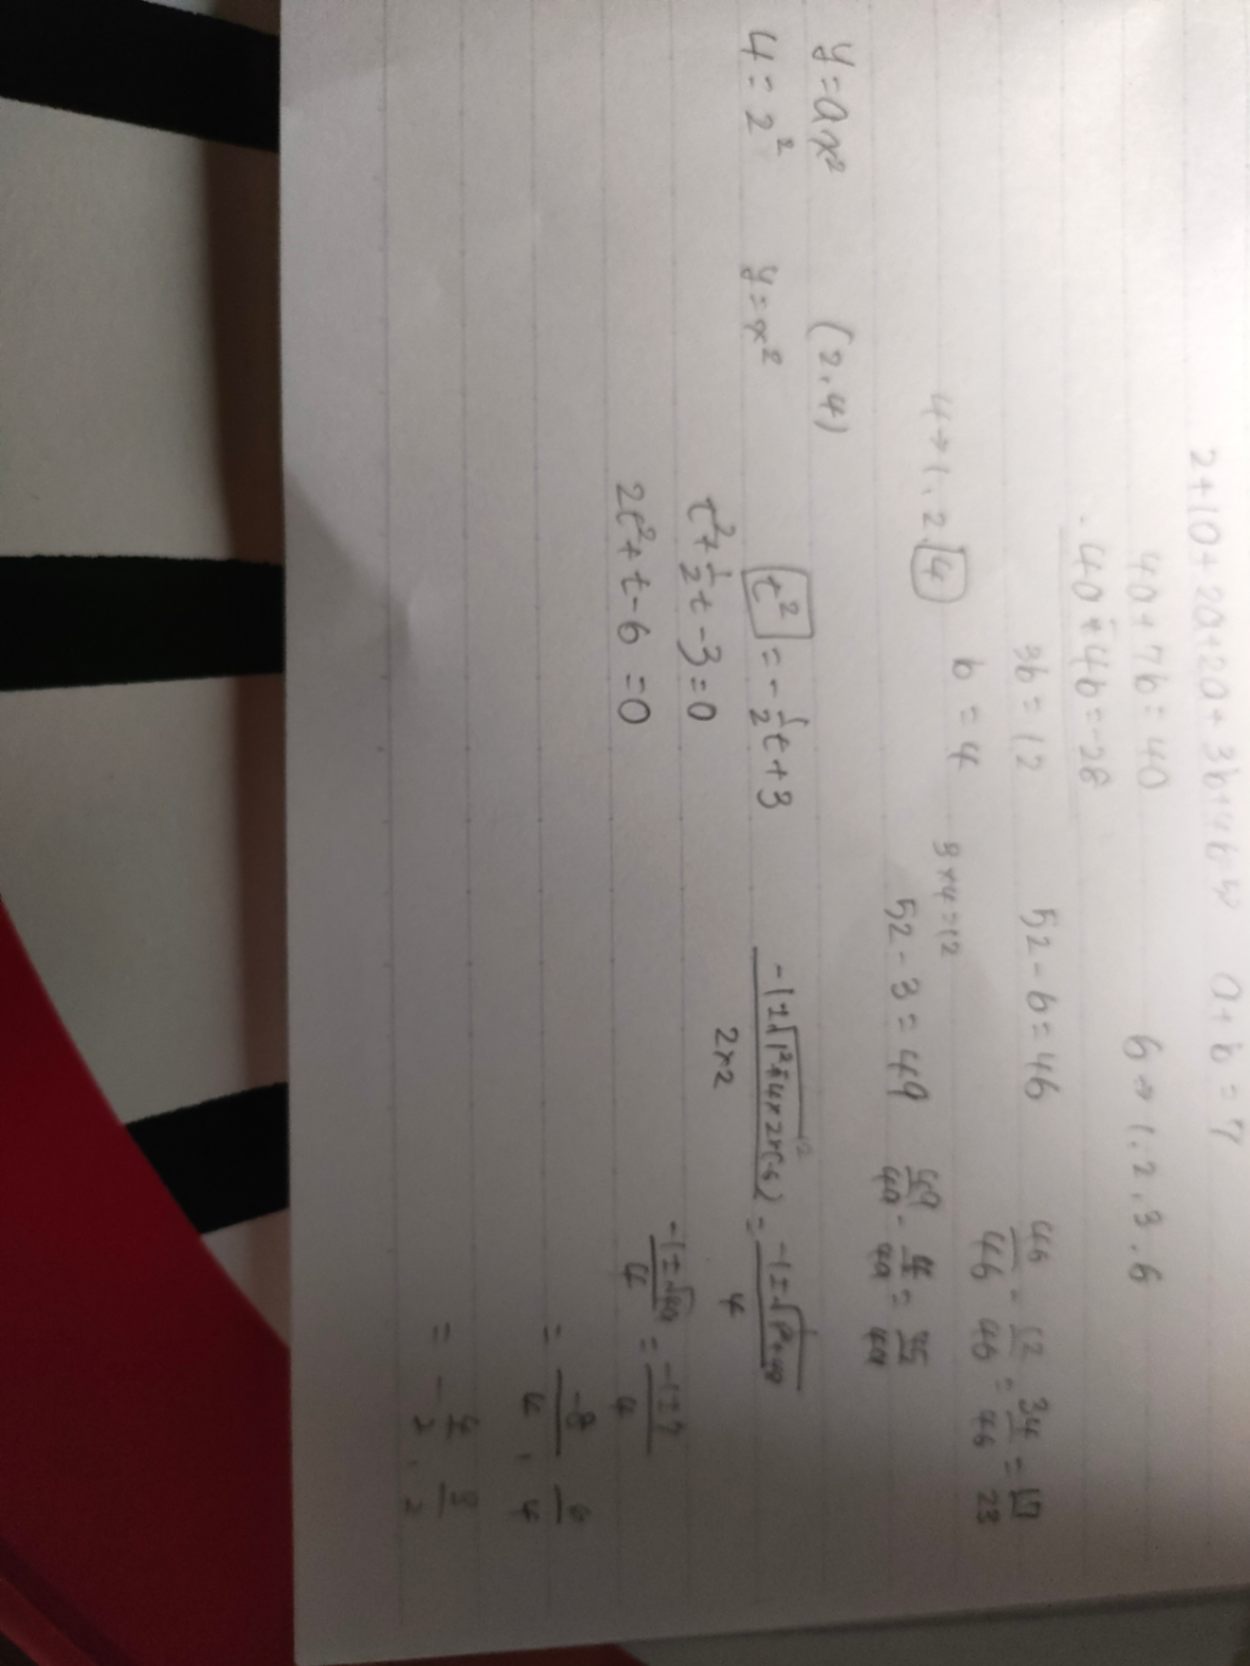 2+10+2a+2a+3b+4b=52 a+b=7
4a+7b=40 6→1.2.3.6
4a+4b=28
3b=12 52-6=46 46/46 - 12/46 = 34/46 = 17/23
b=4 3×4=12
4→1.2.4 52-3=49 49/49 - 4/49 = 45/49
y=ax² (2.4)
4=2² y=x² t² = -1/2t+3 -1±√1²-4×2×(-6) / 2×2 = -1±√1²+48 / 4
t²+1/2t-3=0 -1±√49 / 4 = -1±7 / 4
2t²+t-6=0
= -8/4, 6/4
= -4/2, 3/2